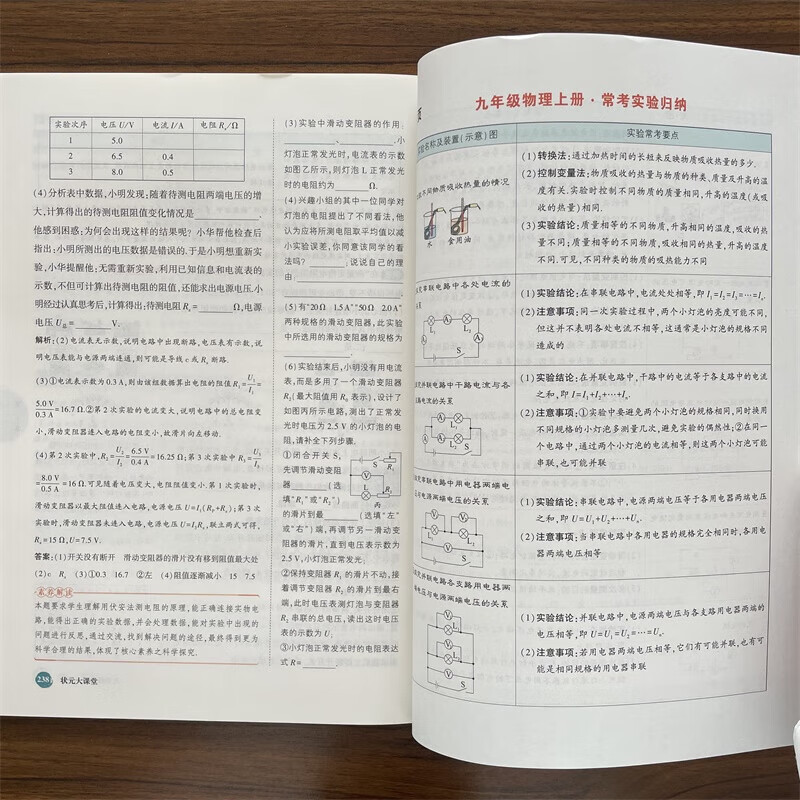 实验次序 电压U/V 电流I/A 电阻Rx/Ω
1 5.0
2 6.5 0.4
3 8.0 0.5
(4)分析表中数据,小明发现:随着待测电阻两端电压的增
大,计算得出的待测电阻阻值变化情况是________.
他感到困惑:为何会出现这样的结果呢?小华帮他检查后
指出:小明所测出的电压数据是错误的.于是小明想重新实
验,小华提醒他:无需重新实验,利用已知信息和电流表的
示数,不但可计算出待测电阻的阻值,还能求出电源电压.小
明经过认真思考后,计算得出:待测电阻Rx=____Ω,电源
电压U总=____V.
解析:(2)电流表无示数,说明电路中出现断路,电压表有示数,说
明电压表能与电源两端连通,则可能是导线c或Rx断路.
(3)①电流表示数为0.3 A,则由该组数据算出电阻的阻值R1=U1/I1=
5.0 V/0.3 A=16.7 Ω.②第2次实验的电流变大,说明电路中的总电阻变
小,滑动变阻器连入电路的电阻变小,故滑片向左移动.
(4)第2次实验中,R2=U2/I2=6.5 V/0.4 A=16.25 Ω;第3次实验中R3=U3/I3
=8.0 V/0.5 A=16 Ω.可见随着电压变大,电阻阻值变小.第1次实验时,
滑动变阻器以最大阻值连入电路,电源电压U=I1(RP+Rx);第3次
实验时,滑动变阻器未连入电路,电源电压U=I3Rx,联立两式可得,
Rx=15 Ω,U=7.5 V.
答案:(1)开关没有断开 滑动变阻器的滑片没有移到阻值最大处
(2)c Rx (3)①0.3 16.7 ②左 (4)阻值逐渐减小 15 7.5
素养解读
本题要求学生理解用伏安法测电阻的原理,能正确连接实物电
路,能得出正确的实验数据,并会处理数据,能对实验中出现的
问题进行反思,通过交流,找到解决问题的途径,最终得到更为
科学合理的结果,体现了核心素养之科学探究.
238 状元大课堂
(3)实验中滑动变阻器的作用
________.小
灯泡正常发光时,电流表的示数
如图乙所示,则灯泡L正常发光
时的电阻约为____Ω.
(4)兴趣小组的其中一位同学对
灯泡的电阻提出了不同看法,他
认为应将所测电阻取平均值以减
小实验误差,你同意该同学的看
法吗?____;说说自己的理
由________
________.
(5)有“20Ω 1.5A”“50Ω 2.0A”
两种规格的滑动变阻器,此实验
中所选用的滑动变阻器的规格为
________.
(6)实验结束后,小明没有用电流
表,而是多用了一个滑动变阻器
R2(最大阻值用R0表示),设计了
如图丙所示电路,测出了正常发
光时电压为2.5 V的小灯泡的电
阻,请补全下列步骤.
①闭合开关S,
先调节滑动变阻
器____(选
填“R1”或“R2”)
S R1 R2 丙
的滑片到最____(选填“左”
或“右”)端,再调节另一滑动变
阻器的滑片,直到电压表示数为
2.5 V,小灯泡正常发光;
②保持变阻器R1的滑片不动,接
着调节变阻器R2的滑片到最右
端,此时电压表测灯泡与变阻器
R2串联的总电压,读出这时电压
表的示数为U;
③小灯泡正常发光时的电阻表达
式R=____
九年级物理上册·常考实验归纳
名称及装置(示意)图 实验常考要点
不同物质吸收热量的情况
水 食用油
(1)转换法:通过加热时间的长短来反映物质吸收热量的多少.
(2)控制变量法:物质吸收的热量与物质的种类、质量及升高的温
度有关.实验时控制不同物质的质量相同,升高的温度(或吸
收的热量)相同.
(3)实验结论:质量相等的不同物质,升高相同的温度,吸收的热
量不同;质量相等的不同物质,吸收相同的热量,升高的温度
不同.可见,不同种类的物质的吸热能力不同
串联电路中各处电流的
关系
A L1 A L2 A S
(1)实验结论:在串联电路中,电流处处相等,即I1=I2=I3=…=In.
(2)注意事项:同一次实验过程中,两个小灯泡的亮度可能不同,
但这并不表明各处电流不相等,这通常是小灯泡的规格不同
造成的
并联电路中干路电流与各
电流的关系
A L1 A L2 A S
(1)实验结论:在并联电路中,干路中的电流等于各支路中的电流
之和,即I=I1+I2+…+In.
(2)注意事项:①实验中要避免两个小灯泡的规格相同,同时换用
不同规格的小灯泡多测量几次,避免实验的偶然性;②在同一
个电路中,通过两个小灯泡的电流相等,则这两个小灯泡可能
串联,也可能并联
串联电路中用电器两端电
与电源两端电压的关系
V V L1 L2 V S
(1)实验结论:串联电路中,电源两端电压等于各用电器两端电压
之和,即U=U1+U2+…+Un.
(2)注意事项:当串联电路中各用电器的规格完全相同时,各用电
器两端电压相等
并联电路各支路用电器两
电压与电源两端电压的关系
V L1 V L2 V S
(1)实验结论:并联电路中,电源两端电压与各支路用电器两端的
电压相等,即U=U1=U2=…=Un.
(2)注意事项:若用电器两端电压相等,它们有可能并联,也有可
能是相同规格的用电器串联